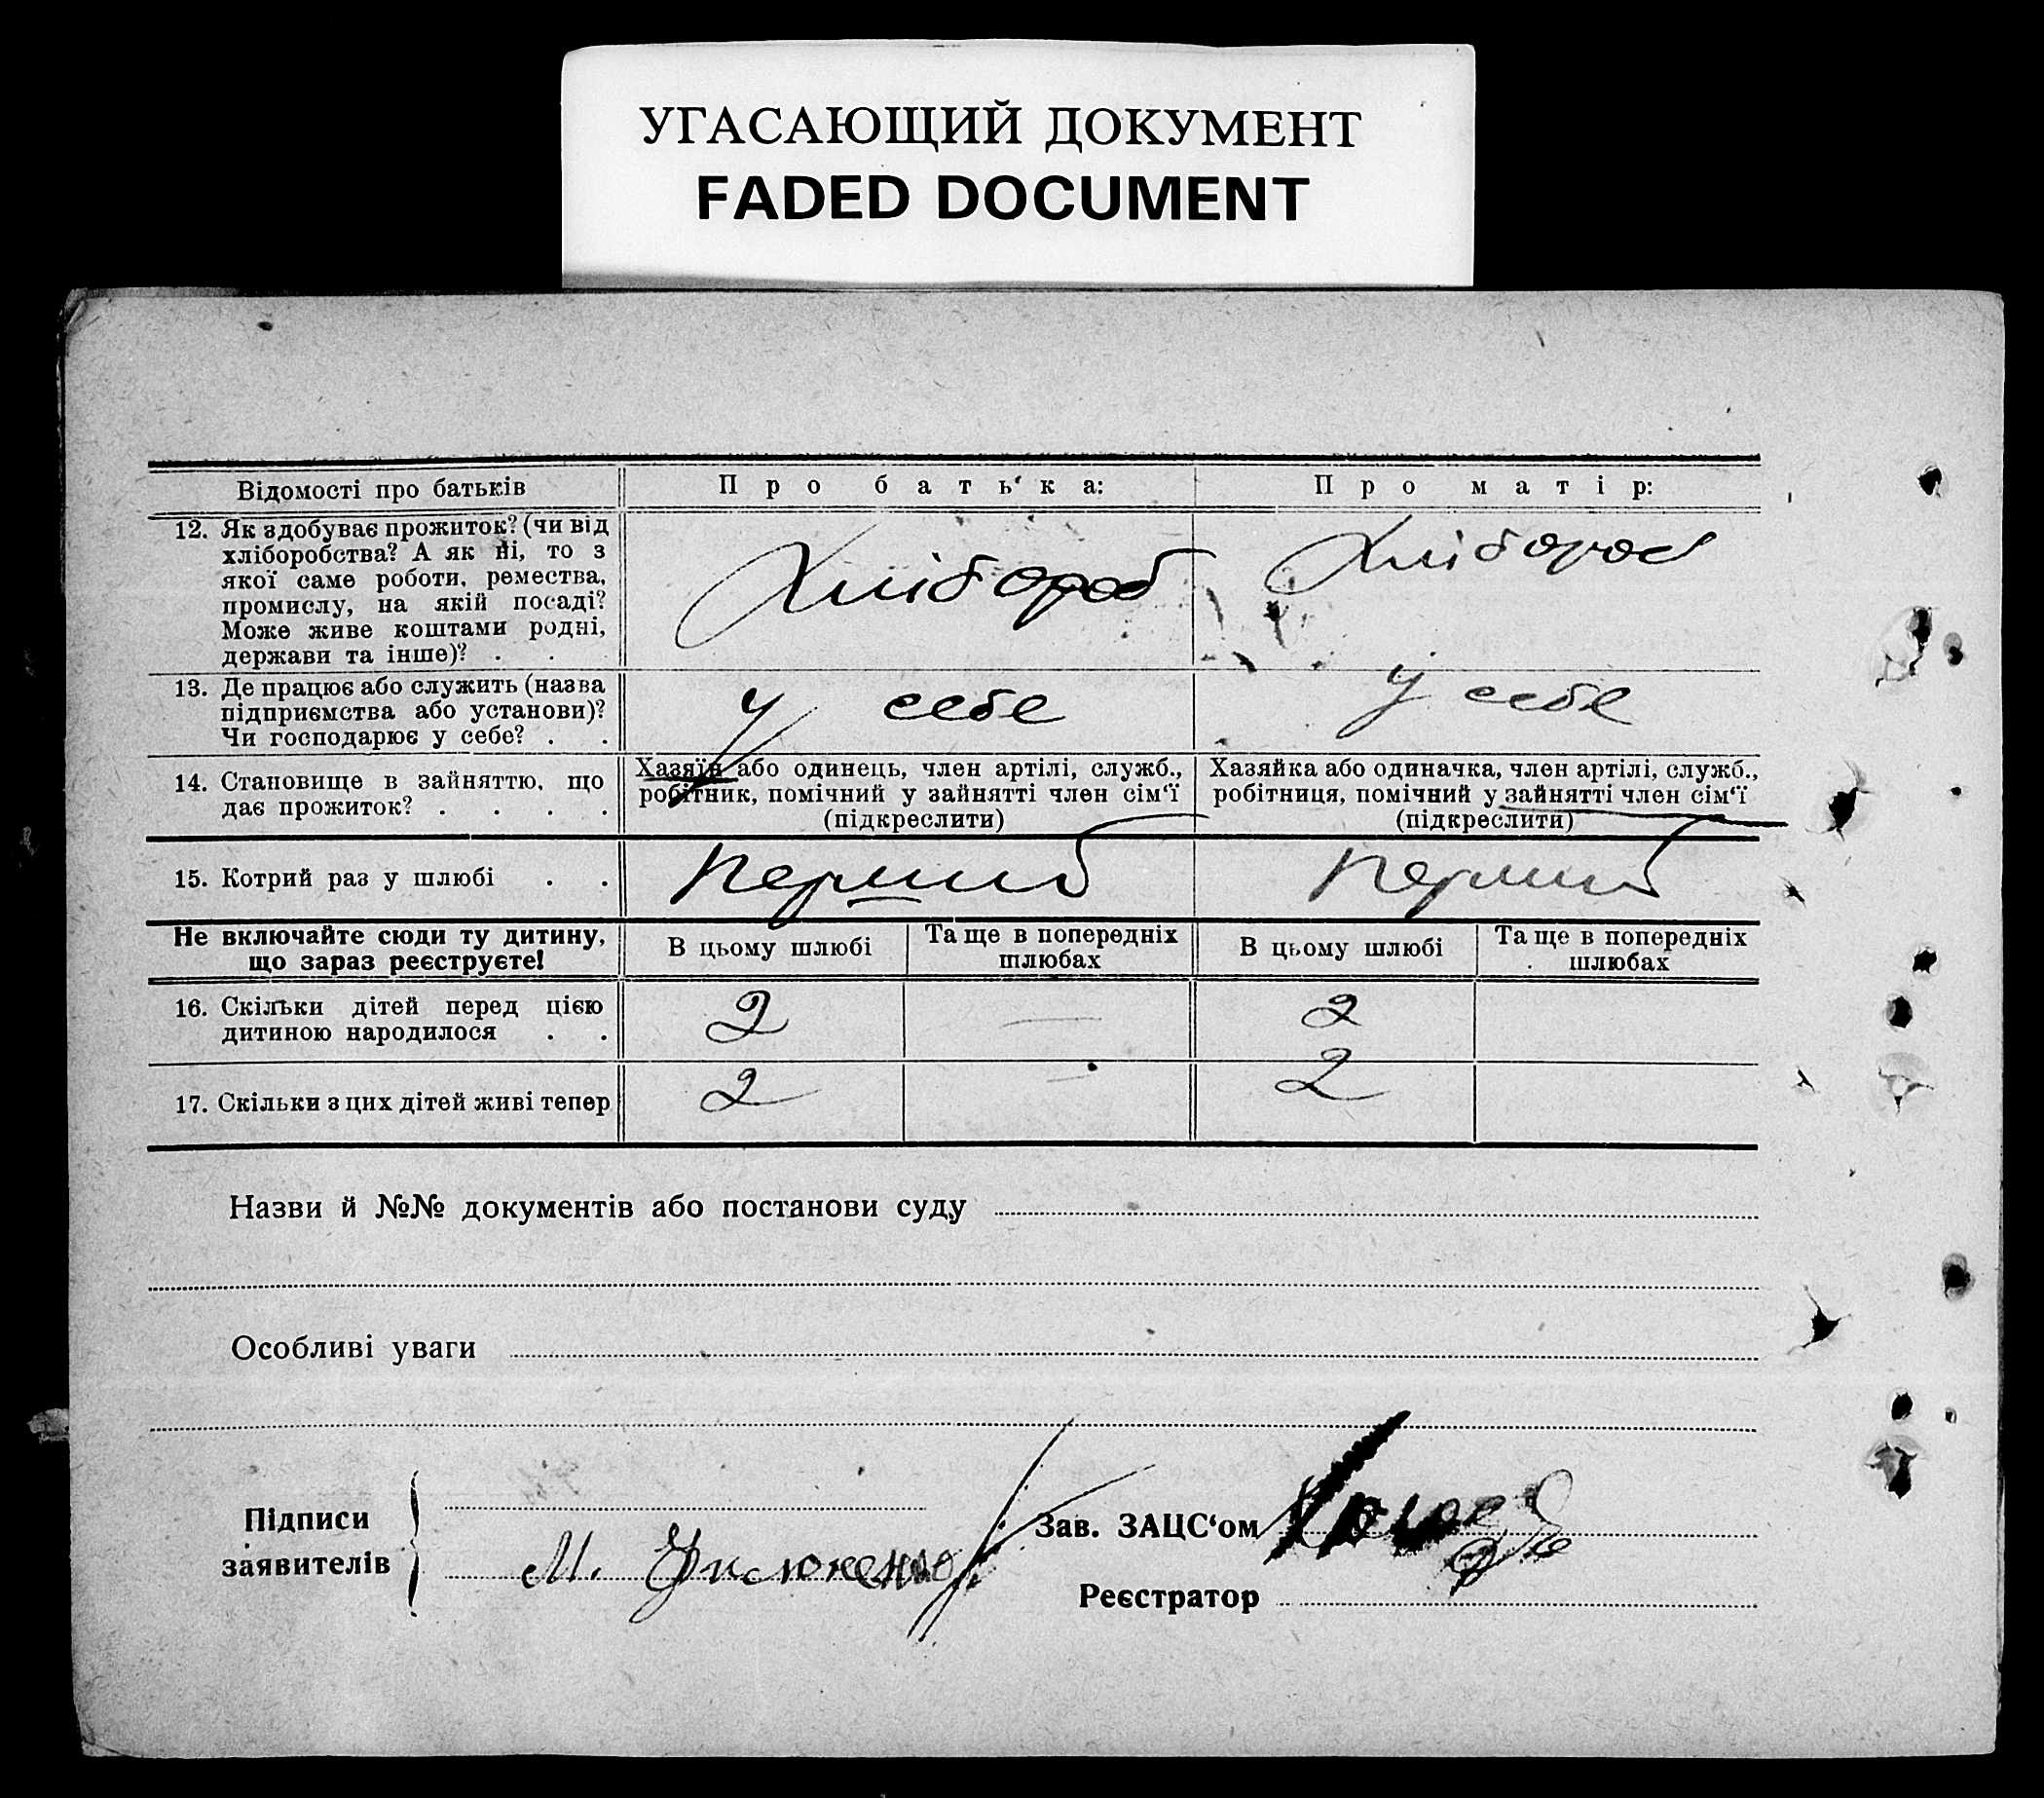 УГАСАЮЩИЙ ДОКУМЕНТ
FADED DOCUMENT
Відомості про батьків
Про батька:
Про матір:
12. Як здобуває прожиток? (чи від
хліборобства? А як ні, то з
якої саме роботи, ремества,
промислу, на якій посаді?
Може живе коштами родні,
держави та інше)? . .
Хлібороб
Хлібороб
13. Де працює або служить (назва
підприємства або установи)?
Чи господарює у себе? . .
у себе
у себе
14. Становище в зайняттю, що
дає прожиток? . . . .
Хазяїн або одинець, член артілі, служб.,
робітник, помічний у зайнятті член сім'ї
(підкреслити)
Хазяйка або одиначка, член артілі, служб.,
робітниця, помічний у зайнятті член сім'ї
(підкреслити)
15. Котрий раз у шлюбі . .
перший
перший
Не включайте сюди ту дитину,
що зараз реєструєте!
В цьому шлюбі
Та ще в попередніх
шлюбах
В цьому шлюбі
Та ще в попередніх
шлюбах
16. Скільки дітей перед цією
дитиною народилося . .
2
—
2
17. Скільки з цих дітей живі тепер
2
—
2
Назви й №№ документів або постанови суду
Особливі уваги
Підписи
заявителів
М. Филюкенко
Зав. ЗАЦС'ом
Реєстратор